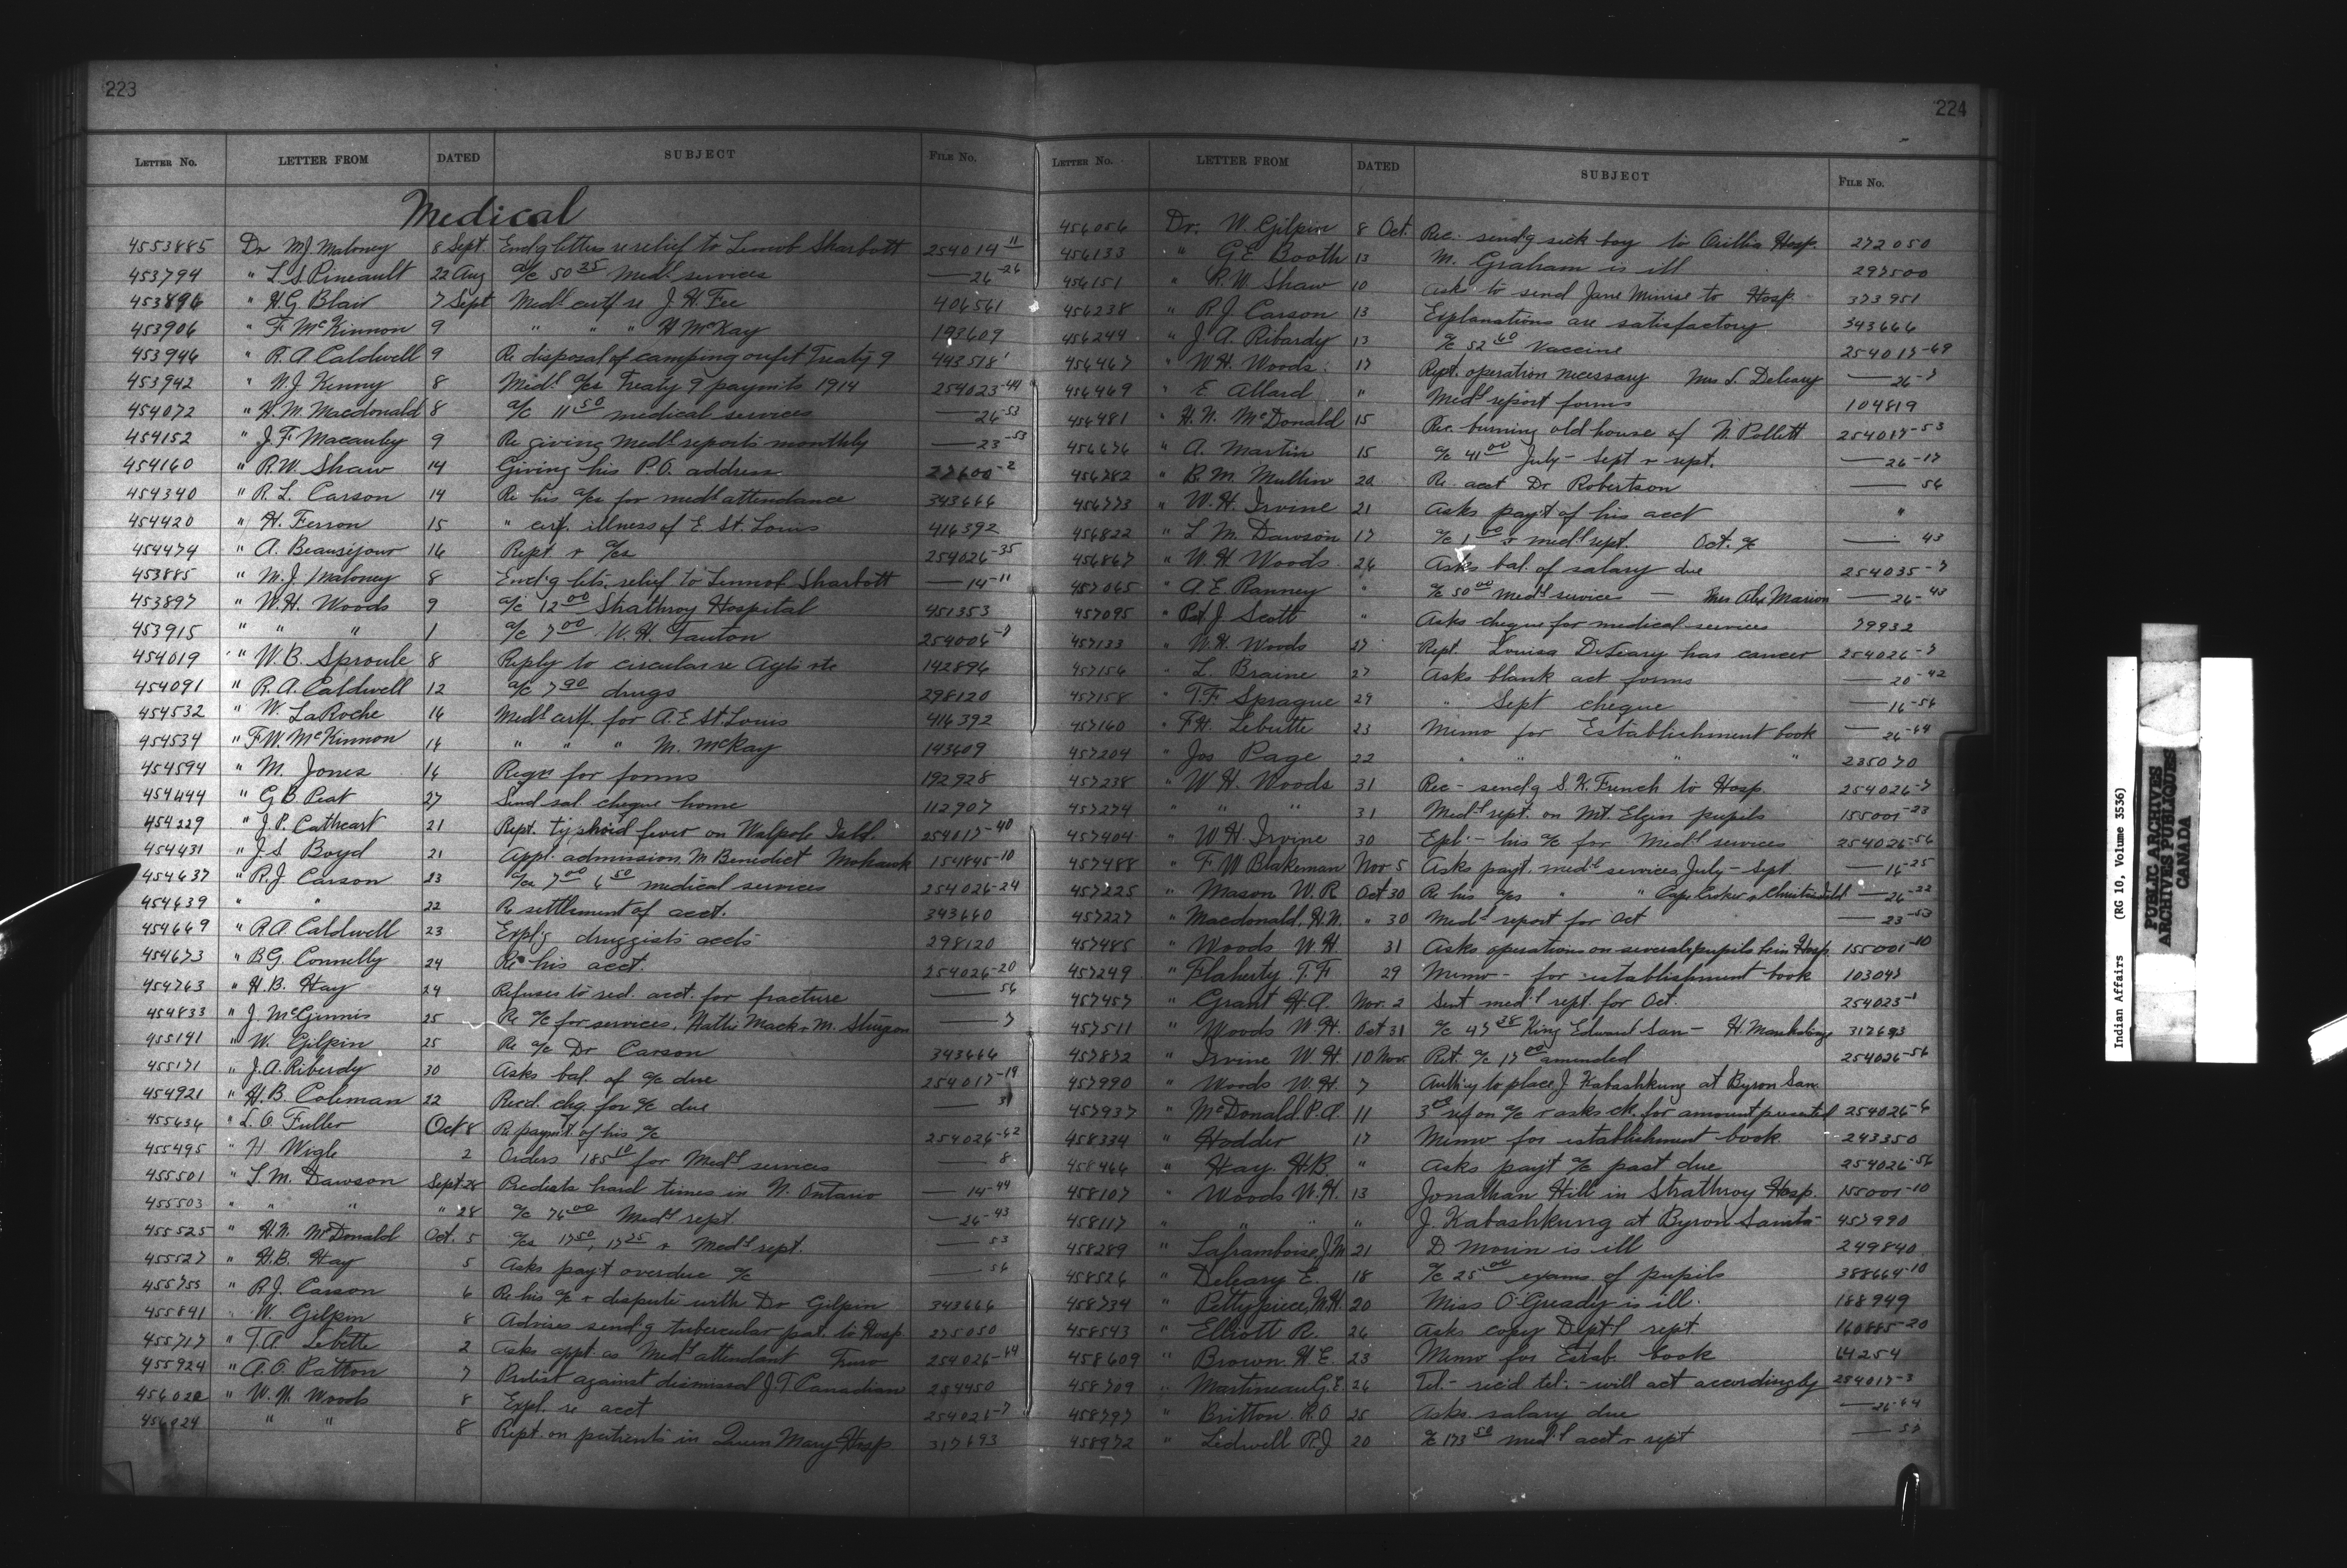 223
LETTER No. LETTER FROM DATED SUBJECT FILE No.
Medical
4553885 Dr M.J. Maloney 8 Sept. Encl'g letters re relief to Sharbott 254014-11
453794 " L.S. Pineault 22 Aug a/c 50 35 Medl. services — 26-26
453896 " H.G. Blair 7 Sept Medl. certf re J.H. Fee 406561
453906 " F. McKinnon 9 " " " H McKay 193609
453946 " R.A. Caldwell 9 Re disposal of camping outfit Treaty 9 443518
453942 " N.J. Kenny 8 Medl. a/cs Treaty 9 paymts 1914 254023-44
454072 " H.M. Macdonald 8 a/c 11 50 medical services — 26-53
454152 " J.F. Macaulay 9 Re giving Medl. reports monthly — 23-53
454160 " R.W. Shaw 14 Giving his P.O. address 27600-2
454340 " R.L. Carson 14 Re his a/cs for medl. attendance 343666
454420 " H. Ferron 15 " certf. illness of E. St. Louis 416392
454474 " A. Beausejour 16 Rept. & a/cs 254026-35
453885 " M.J. Maloney 8 Encl'g lets. relief to Sharbott — 14-11
453897 " W.H. Woods 9 a/c 12 00 Strathroy Hospital 451353
453915 " " " 1 a/c 7 00 W.H. Tauton 254006-7
454019 " W.B. Sproule 8 Reply to circular re Agts etc 142896
454091 " R.A. Caldwell 12 a/c 7 90 drugs 298120
454532 " W. LaRoche 16 Medl. certf. for A.E. St. Louis 416392
454534 " F.W. McKinnon 16 " " " M. McKay 193609
454594 " M. Jones 16 Reqn for forms 192928
454444 " G.B. Peat 27 Send sal. cheque home 112907
454229 " J.P. Cathcart 21 Rept. typhoid fever on Walpole Isld. 254017-40
454431 " J.S. Boyd 21 Appl. admission M Benedict Mohawk 154845-10
454637 " R.J. Carson 23 a/cs 7 00 6 50 medical services 254026-24
454639 " " 22 Re settlement of acct. 343660
454669 " R.A. Caldwell 23 Expl'g druggists accts 298120
454673 " B.G. Connelly 24 Re his acct. 254026-20
454763 " H.B. Hay 24 Refuses to red. acct. for fracture — 56
454833 " J. McGinnis 25 Re a/c for services, Hattie Mack & M. Sturgeon — 7
455141 " W. Gilpin 25 Re a/c Dr Carson 343666
455171 " J.A. Riberdy 30 Asks bal. of a/c due 254017-19
454921 " H.B. Coleman 22 Recd. chq. for a/c due — 31
455636 " L.O. Fuller Oct 8 Re paymt of his a/c 254026-62
455495 " H Wigle 2 Orders 185 10 for Medl services — 8
455501 " L.M. Dawson Sept 28 Predicts hard times in N. Ontario — 14-44
455503 " " " " 28 a/c 76 00 Medl. rept. — 26-43
455525 " H.N. McDonald Oct. 5 a/cs 17 50, 17 25 & Medl. rept. — 53
455527 " H.B. Hay 5 Asks pay't overdue a/c — 56
455755 " R.J. Carson 6 Re his a/c & dispute with Dr Gilpin 343666
455841 " W. Gilpin 8 Advises send'g tubercular pat. to Hosp. 275050
455717 " T.A. Lebette 2 Asks appt. as Medl attendant Truro 254026-64
455924 " A.O. Patton 7 Protest against dismissal J T Canadian 254450
456022 " W.H. Woods 8 Expl. re acct 254026-7
456024 " " 8 Rept. on patients in Queen Mary Hosp. 317693
224
LETTER No. LETTER FROM DATED SUBJECT FILE No.
456056 Dr. W. Gilpin 8 Oct. Rec. send'g sick boy to Orillia Hosp. 272050
456133 " G.E. Booth 13 M. Graham is ill 297500
456151 " R.W. Shaw 10 Asks to send Jane Minise to Hosp. 373951
456238 " R.J. Carson 13 Explanations are satisfactory 343666
456244 " J.A. Ribardy 13 a/c 52 60 Vaccine 254017-69
456467 " W.H. Woods 17 Rept. operation necessary Mrs S. Deleary — 26-7
456469 " E Allard " Medl report forms 104819
456481 " H.N. McDonald 15 Rec. burning old house of N. Pollett 254017-53
456676 " A. Martin 15 a/c 41 00 July - Sept & rept. — 26-17
456782 " B.M. Mullin 20 Re. acct Dr Robertson — 56
456773 " W.H. Irvine 21 Asks pay't of his acct "
456822 " L.M. Dawson 17 a/c 1 00 & medl rept. Oct. a/c — 43
456867 " W.H. Woods 26 Asks bal. of salary due 254035-7
457065 " A.E. Ranney " a/c 50 00 medl services — Mrs Alex Marion — 26-43
457095 " Pat J Scott " Asks cheque for medical services 79932
457133 " W.H. Woods 27 Rept. Louisa DeLeary has cancer 254026-7
457156 " L. Braine 27 Asks blank act forms — 20-42
457158 " T.F. Sprague 29 " Sept cheque — 16-56
457160 " F.H. Lebutte 23 Memo for Establishment book — 26-64
457204 " Jos Page 22 " " " " 235070
457238 " W.H. Woods 31 Rec - send'g S.K. French to Hosp. 254026-7
457274 " " " 31 Medl rept. on Mt. Elgin pupils 155001-23
457404 " W.H. Irvine 30 Expl - his a/c for Medl services 254026-56
457488 " F W Blakeman Nov 5 Asks payt. medl services July - Sept — 16-25
457225 " Mason W.R Oct 30 Re his a/cs " " Cape Croker & Christian Isld — 26-22
457227 " Macdonald, H.N. " 30 Medl report for Oct — 23-53
457485 " Woods W.H. 31 Asks operations on several pupils be in Hosp. 155001-10
457249 " Flaherty T.F 29 Memo - for establishment book 103047
457457 " Grant H.A. Nov. 2 Sent medl rept. for Oct. 254023-1
457511 " Woods W.H. Oct 31 a/c 47 38 King Edward San - H. 317693
457872 " Irvine W.H. 10 Nov. Ret. a/c 17 00 amended 254026-56
457990 " Woods W.H. 7 Auth'y to place J. Kabashkung at Byron San.
457937 " McDonald P.A. 11 3rd ref on a/c & asks ck. for amount presented 254026-6
458334 " Hodder 17 Memo for establishment book 243350
458466 " Hay. H.B. " Asks pay't a/c past due 254026-56
458107 " Woods W.H. 13 Jonathan Hill in Strathroy Hosp. 155001-10
458117 " " " " J. Kabashkung at Byron Sanita- 457990
458289 " Laframboise, J.M. 21 D Morin is ill 249840
458526 " Deleary E. 18 a/c 25 00 exams. of pupils 388664-10
458734 " Pettypiece, M.H. 20 Miss O'Gready is ill. 188949
458543 " Elliott R. 26 Asks copy Dept'l rept. 160885-20
458609 " Brown. H.E. 23 Memo for Estab. book 64254
458709 " Martineau G.E. 26 Tel. - rec'd tel: - will act accordingly 254017-3
458797 " Britton R.O. 25 Asks salary due — 26-64
458972 " Ledwell P.J 20 a/c 173 50 medl acct & rept — 53
Indian Affairs (RG 10, Volume 3536)
PUBLIC ARCHIVES
ARCHIVES PUBLIQUES
CANADA